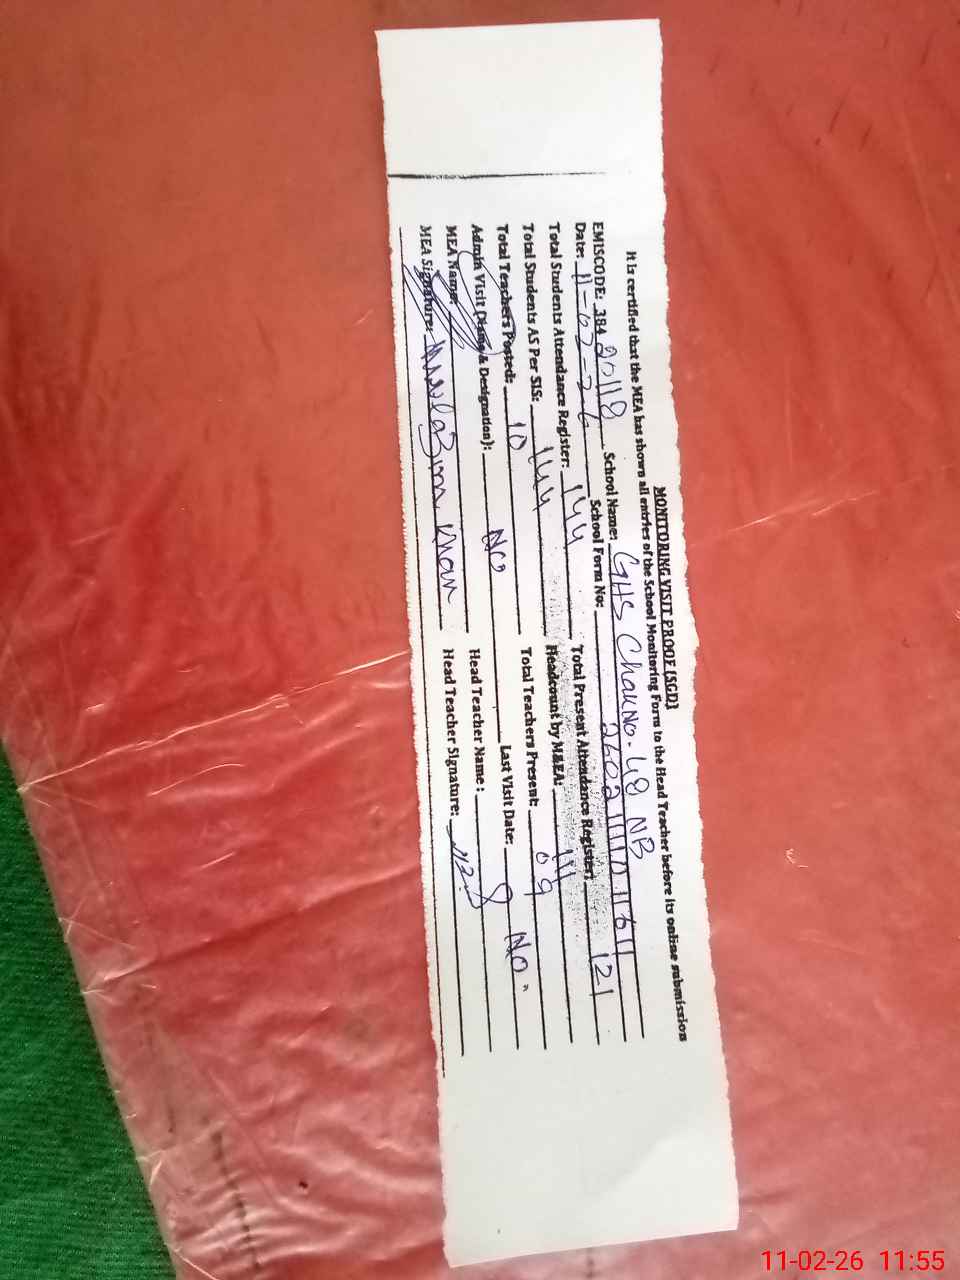 MONITORING VISIT PROOF [SGD]
It is certified that the MEA has shown all entries of the School Monitoring Form to the Head Teacher before its online submission
EMISCODE: 38420118 School Name: GHS Chak No. 48 NB
Date: 11-02-26 School Form No:
Total Students Attendance Register: 144 Total Present Attendance Register: 121
Total Students AS Per SIS: 144 Headcount by M&EA: 111
Total Teachers Posted: 10 Total Teachers Present: 09
Admin Visit (Name & Designation): No Last Visit Date: No.
MEA Name: Head Teacher Name:
MEA Signature: Khan Head Teacher Signature:
11-02-26 11:55